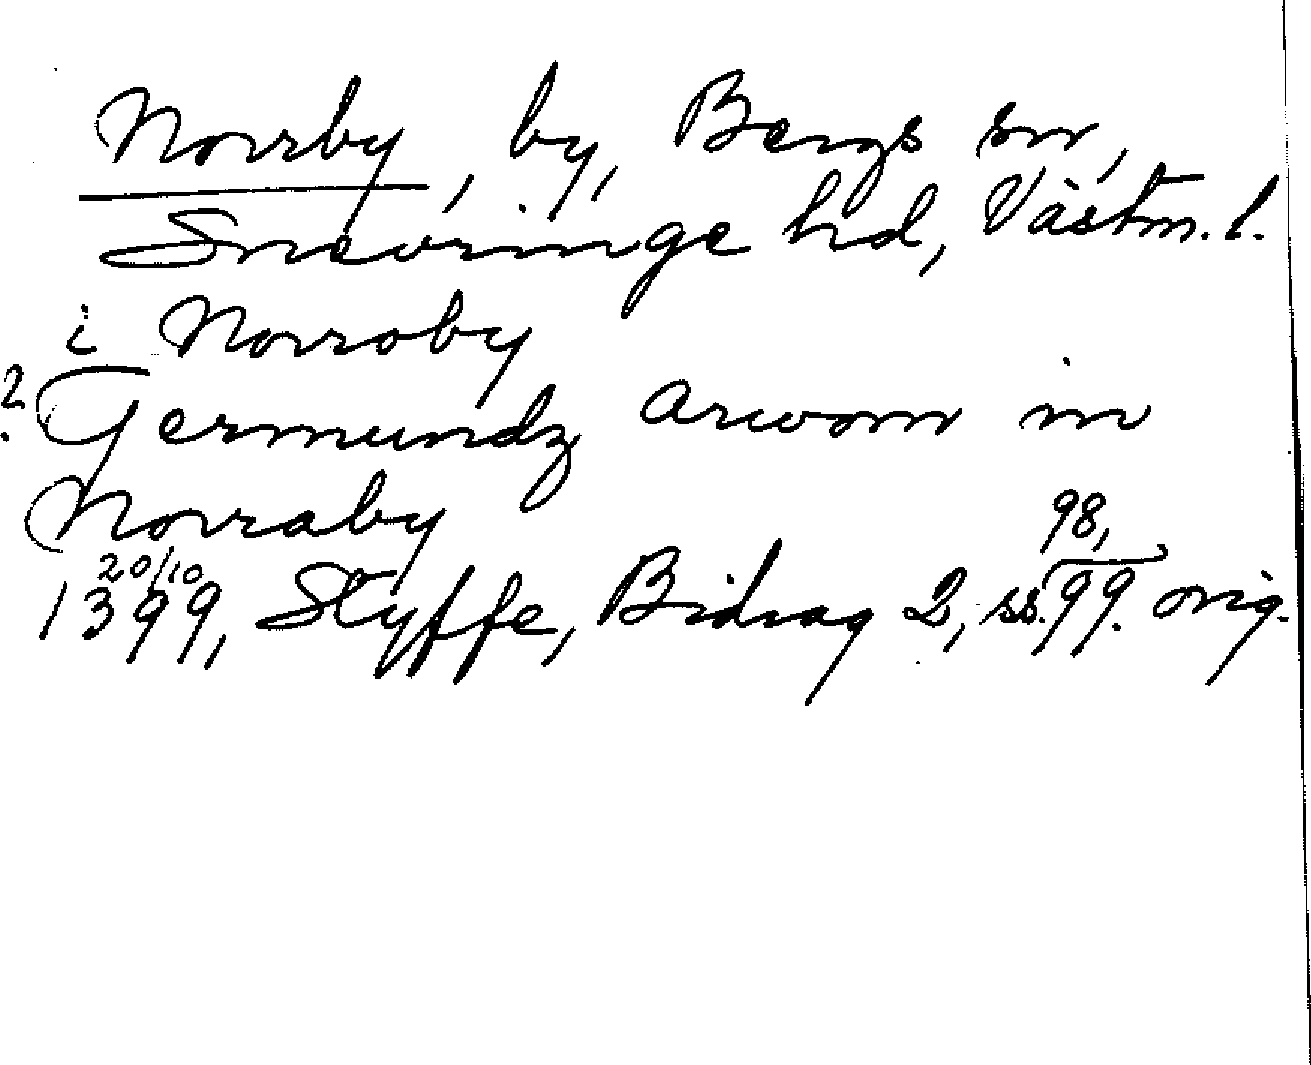 Norrby, by, Bergs sn,
Snevringe hd, Västm. l.
i Norroby
? Germundz arwom in
Norraby
1399 20/10, Styffe, Bidrag 2, ss. 98, 99. orig.